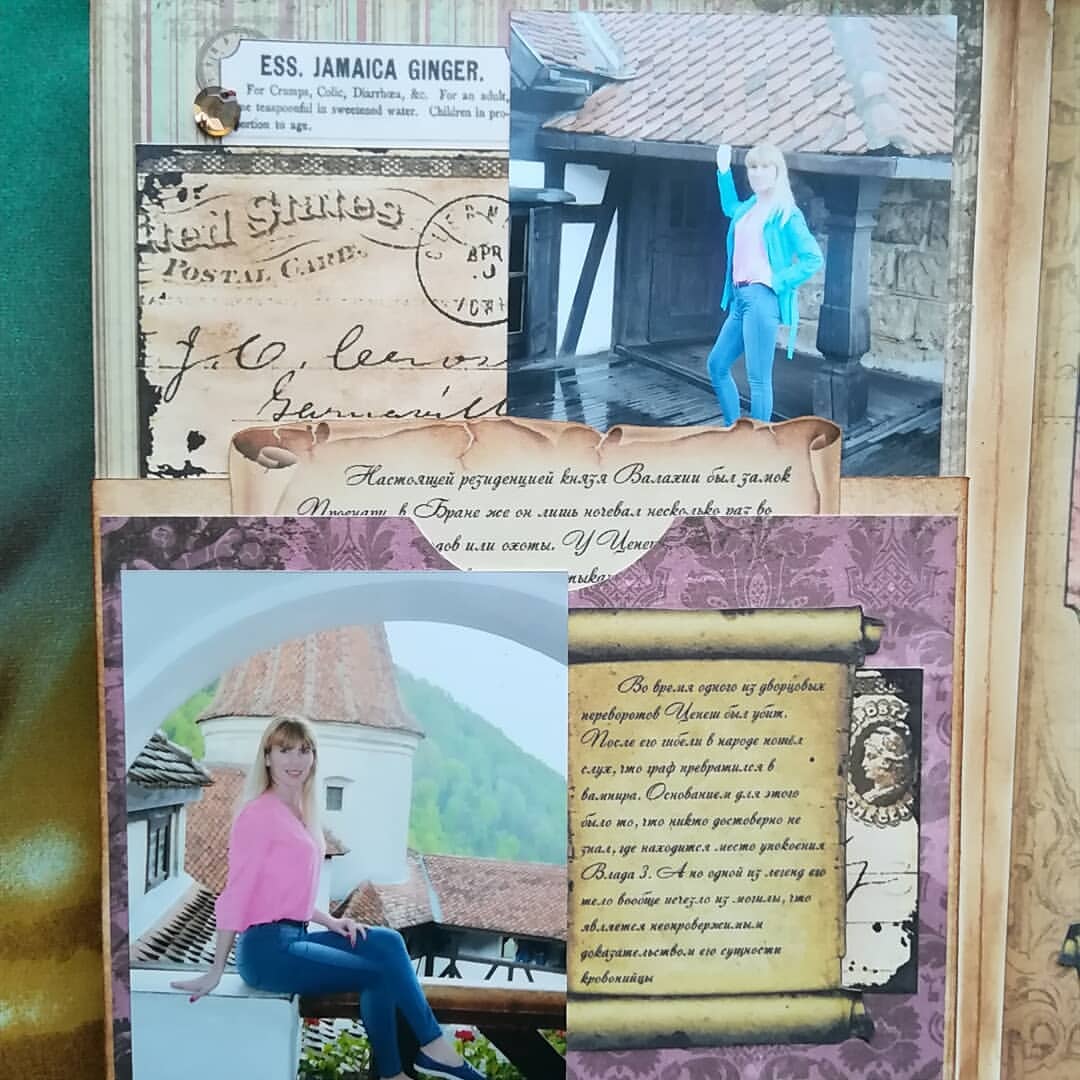 ESS. JAMAICA GINGER.
For Cramps, Colic, Diarrhœa, &c. For an adult,
one teaspoonful in sweetened water. Children in pro-
portion to age.
States
POSTAL CARD
APR
J. C.
Настоящей резиденцией князя Валахии был замок
Поенари, в Бране же он лишь ночевал несколько раз во
дов или охоты. У Ценеш
Во время одного из дворцовых
переворотов Ценеш был убит.
После его гибели в народе пошёл
слух, что граф превратился в
вампира. Основанием для этого
было то, что никто достоверно не
знал, где находится место упокоения
Влада 3. А по одной из легенд его
тело вообще исчезло из могилы, что
является неопровержимым
доказательством его сущности
кровопийцы